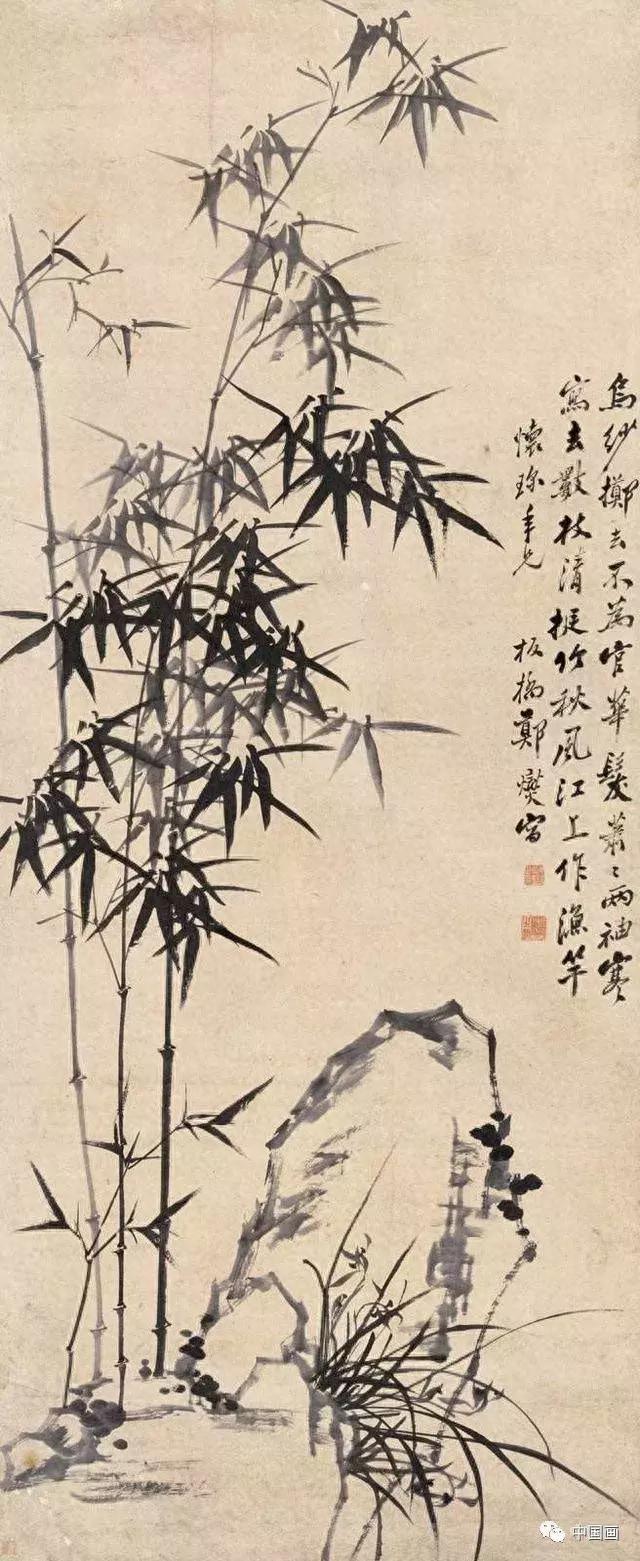 烏紗擲去不為官華髮蕭〻兩袖寒
寫去數枝清挺竹秋風江上作漁竿
懷年兄 板橋鄭燮寫
中国画